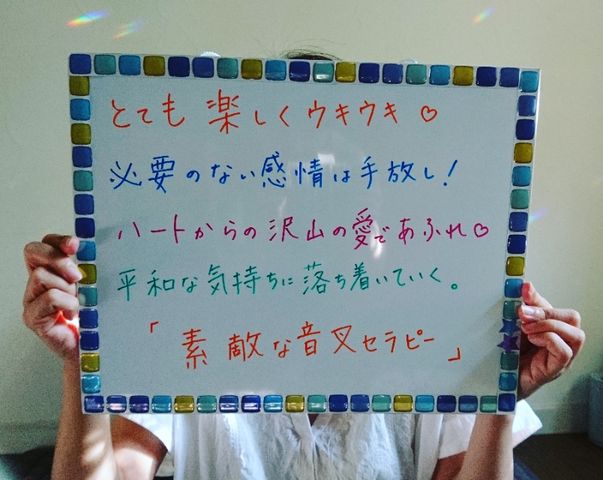 とても 楽しくウキウキ♡
必要のない感情は手放し!
ハートからの沢山の愛であふれ♡
平和な気持ちに落ち着いていく。
「素敵な音叉セラピー」